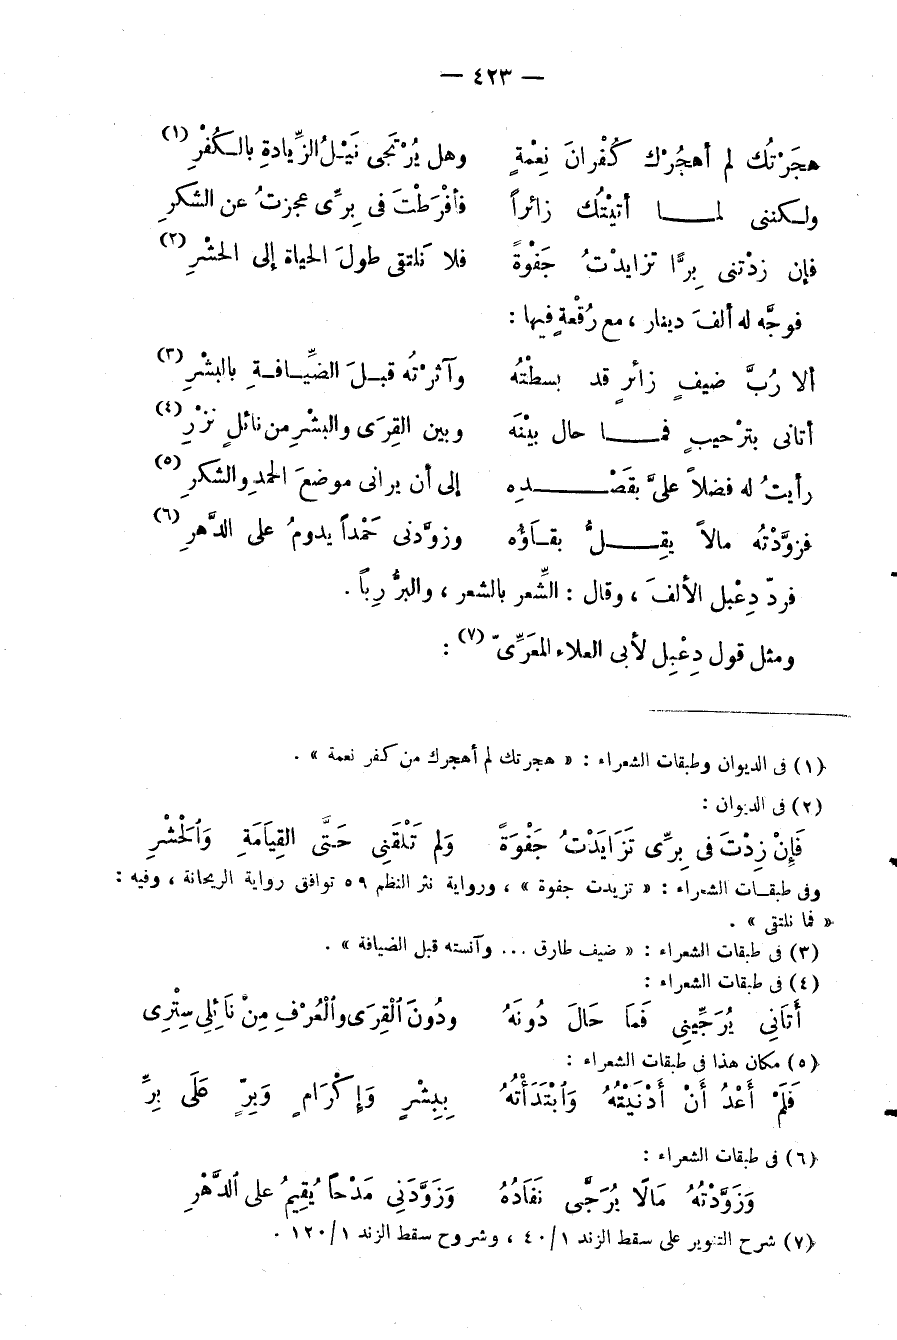 — ٤٢٣ —
هجَرْتُك لم أهجُرْك كُفْرانَ نِعْمةٍ وهل يُرْتَجى نَيْلُ الزِّيادةِ بالكُفْرِ (١)
ولكننى لمـا أتيْتُك زائراً فأفْرَطْتَ فى بِرِّى عجزتُ عن الشكرِ
فإن زدْتنى بِرًّا تزايدْتُ جَفْوةً فلا نَلتقى طولَ الحياة إلى الحشْرِ (٢)
فوجَّه له ألفَ دينار ، مع رُقْعةٍ فيها :
ألا رُبَّ ضيفٍ زائرٍ قد بسطتْهُ وآثرْتُه قبـلَ الضِّيـافـةِ بالبشْرِ (٣)
أتانى بترْحيبٍ فمـا حال بيْنَه وبين القِرَى والبشْرِ من نائلٍ نَزْرِ (٤)
رأيتُ له فضلاً علىَّ بقَصْـدِه إلى أن يرانى موضعَ الحمدِ والشكرِ (٥)
فزوَّدْتُه مالاً يقِـلُّ بقـاَؤُه وزوَّدنى حَمْداً يدومُ على الدَّهرِ (٦)
فردّ دِعْبل الألفَ ، وقال : الشِّعر بالشعر ، والبرُّ رِباً .
ومثل قول دِعْبِل لأبى العلاء المعَرِّىّ (٧) :
(١) فى الديوان وطبقات الشعراء : « هجرتك لم أهجرك من كفر نعمة » .
(٢) فى الديوان :
فَإِنْ زِدْتَ فى بِرِّى تَزَايَدْتُ جَفْوَةً وَلم تَلْقَنِى حَتَّى القِيَامَةِ وَٱلْحَشْرِ
وفى طبقـات الشعراء : « تزيدت جفوة » ، ورواية نثر النظم ٥٩ توافق رواية الريحانة ، وفيه :
« فما نلتقى » .
(٣) فى طبقات الشعراء : « ضيف طارق ... وآنسته قبل الضيافة » .
(٤) فى طبقات الشعراء :
أَتَانِي يُرَجِّينِى فَمَا حَالَ دُونَهُ ودُونَ ٱلْقِرَى وٱلْعُرْفِ مِنْ نَائِلِى سِتْرِى
(٥) مكان هذا فى طبقات الشعراء :
فَلَمْ أَعْدُ أَنْ أَدْنَيْتُهُ وَٱبْتَدَأْتُهُ بِبِشْرٍ وَإِكْرَامٍ وَبِرّ عَلَى بِرِّ
(٦) فى طبقات الشعراء :
وَزَوَّدْتُهُ مَالًا يُرَجَّى نَفَادُهُ وَزَوَّدَنِى مَدْحاً يُقِيمُ على ٱلدَّهْرِ
(٧) شرح التنوير على سقط الزند ١/٤٠ ، وشروح سقط الزند ١/١٢٠ .